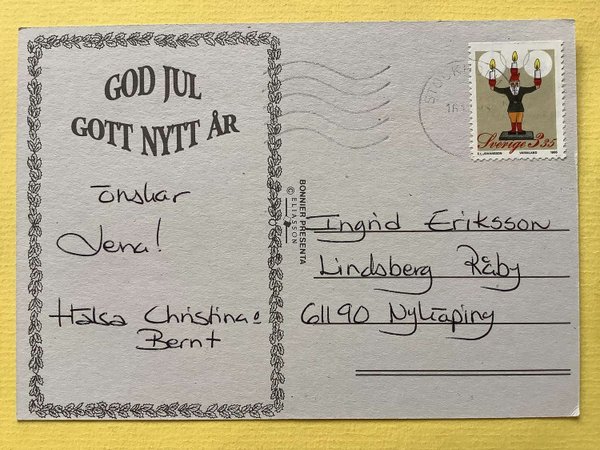 GOD JUL
GOTT NYTT ÅR
önskar
Lena!
Hälsa Christina o
Bernt
BONNIER PRESENTA
© ELIASSON
Sverige 3.35
1995
Ingrid Eriksson
Lindsberg Råby
61190 Nyköping